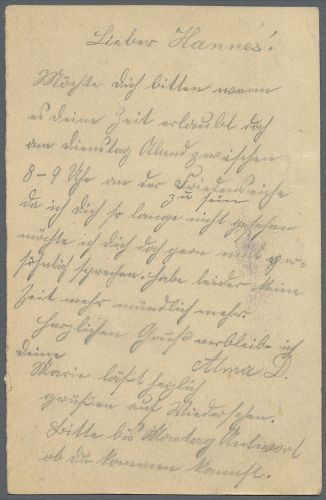 Lieber Hannes!
Möchte dich bitten wenn
es deine Zeit erlaubt doch
am Dienstag Abend zwischen
8-9 Uhr an der Friedenseiche
zu sein
da ich dich so lange nicht gesehen
möchte ich dich doch gern mal per-
söhnlich sprechen. habe leider kein
Zeit mehr mündlich mehr.
Herzlichen Gruß verbleibe ich
deine
Alma D.
Marie läßt herzlich
grüßen auf Wiedersehen.
Bitte bis Montag Antwort
ob du kommen kannst.